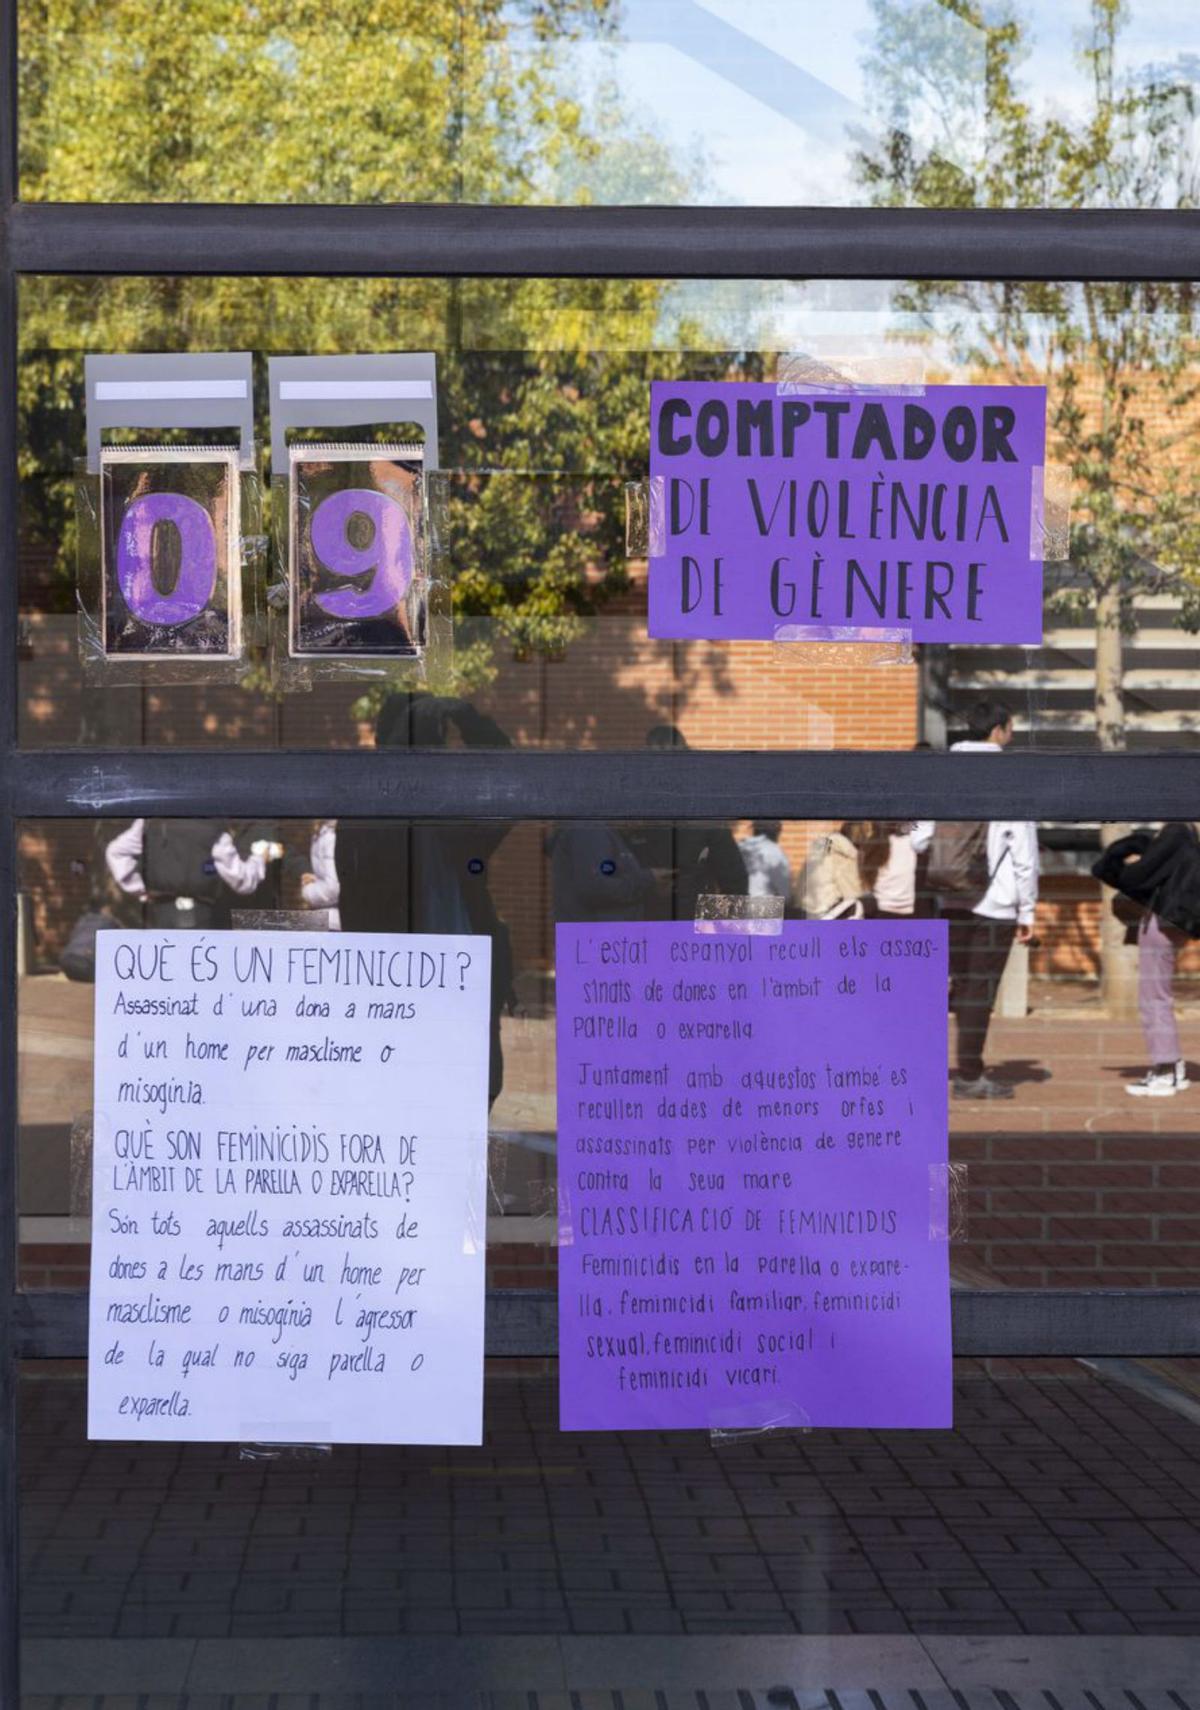 09
COMPTADOR
DE VIOLÈNCIA
DE GÈNERE
QUÈ ÉS UN FEMINICIDI?
Assassinat d'una dona a mans
d'un home per masclisme o
misogínia.
QUÈ SON FEMINICIDIS FORA DE
L'ÀMBIT DE LA PARELLA O EXPARELLA?
Són tots aquells assassinats de
dones a les mans d'un home per
masclisme o misogínia l'agressor
de la qual no siga parella o
exparella.
L'estat espanyol recull els assas-
sinats de dones en l'àmbit de la
parella o exparella
Juntament amb aquestos també es
recullen dades de menors orfes i
assassinats per violència de genere
contra la seua mare
CLASSIFICACIÓ DE FEMINICIDIS
Feminicidis en la parella o expare-
lla, feminicidi familiar, feminicidi
sexual, feminicidi social i
feminicidi vicari.